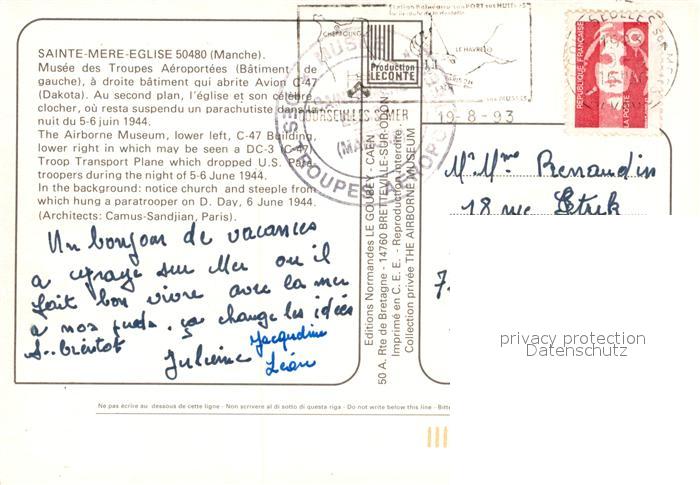 SAINTE-MERE-EGLISE 50480 (Manche).
Musée des Troupes Aéroportées (Bâtiment de
gauche), à droite bâtiment qui abrite Avion C-47
(Dakota). Au second plan, l'église et son célèbre
clocher, où resta suspendu un parachutiste dans la
nuit du 5-6 juin 1944.
The Airborne Museum, lower left, C-47 Building,
lower right in which may be seen a DC-3 (C-47)
Troop Transport Plane which dropped U.S. Para-
troopers during the night of 5-6 June 1944.
In the background: notice church and steeple from
which hung a paratrooper on D. Day, 6 June 1944.
(Architects: Camus-Sandjian, Paris).
Un bonjour de vacances
a sur Mer ou il
fait bon vivre avec la mer
a nos pieds. ça change les idées
A bientot
Julienne
Jacqueline
Léon
CHERBOURG
LE HAVRE
Production
LECONTE
COURSEULLES S/MER
19-8-93
MUSEE DES TROUPES AEROPORTEES
RÉPUBLIQUE FRANÇAISE
LA POSTE
Editions Normandes LE GOUBEY - CAEN
50 A. Rte de Bretagne - 14760 BRETTEVILLE-SUR-ODON
Imprimé en C. E. E. - Reproduction interdite
Collection privée THE AIRBORNE MUSEUM
Mr Mme Renaudin
18 rue
7
privacy protection
Datenschutz
Ne pas écrire au dessous de cette ligne - Non scrivere al di sotto di questa riga - Do not write below this line - Bitte